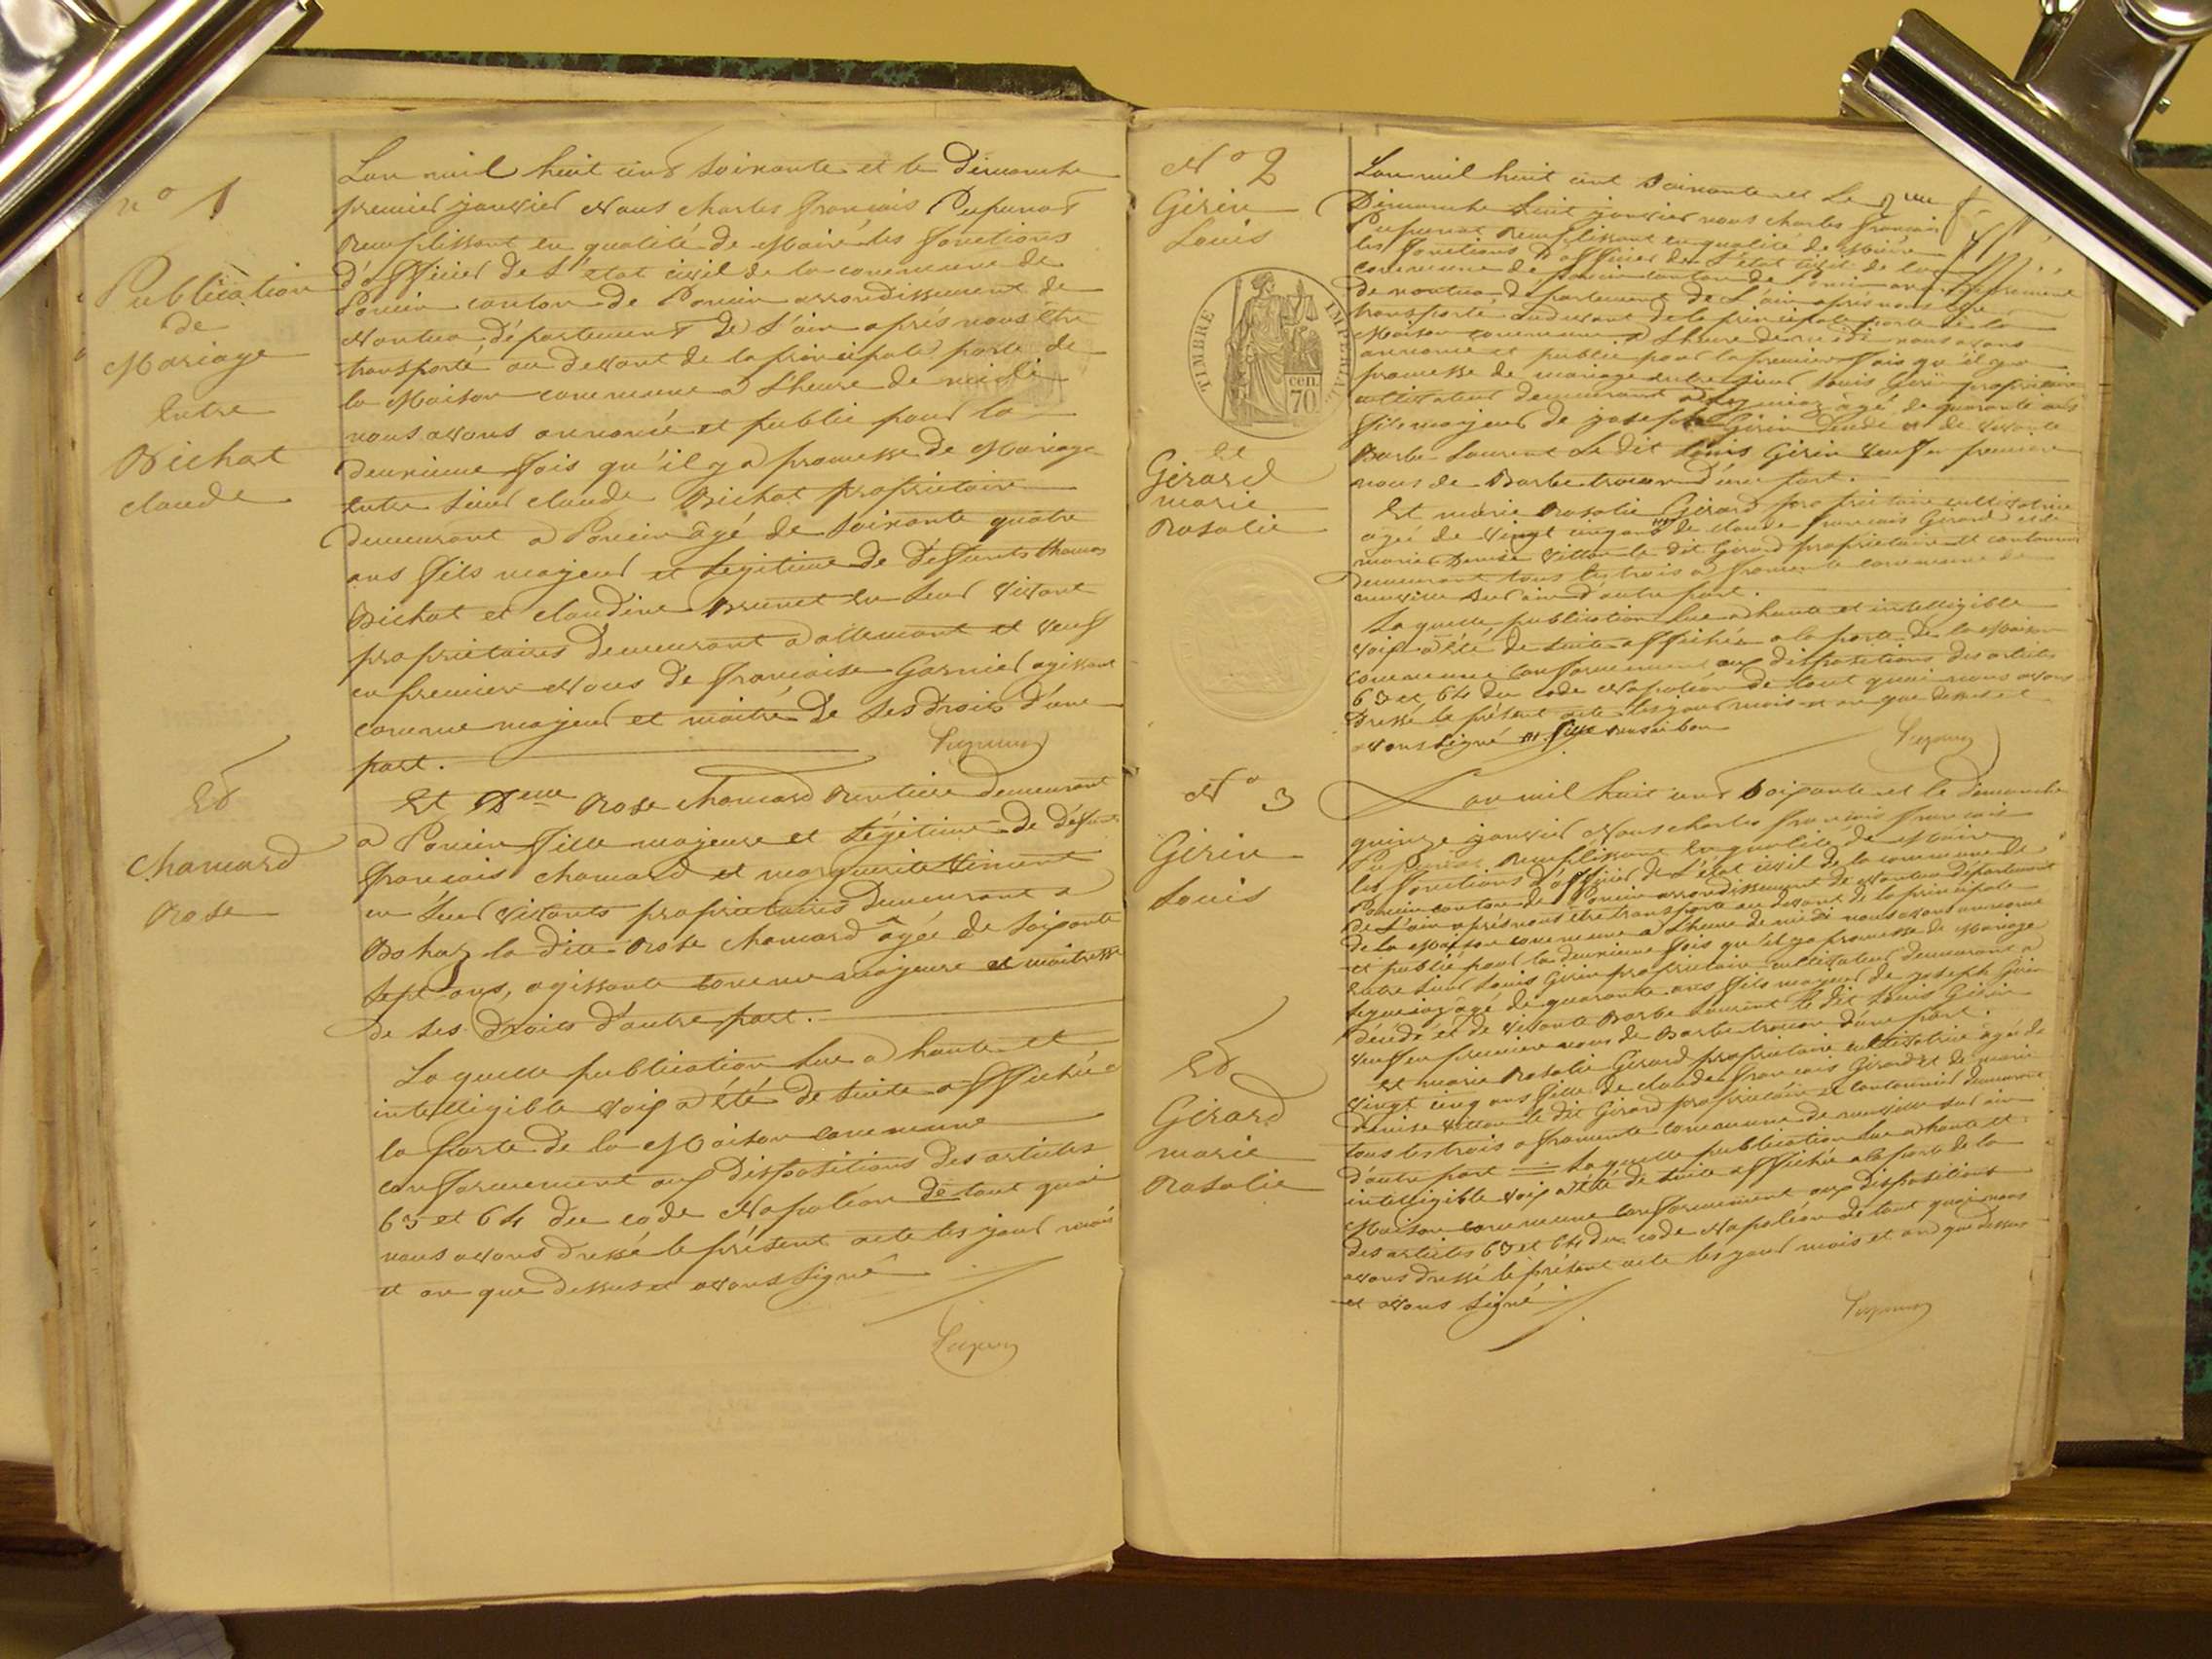 n° 1
Publication
de
Mariage
Entre
Bichat
claude
Et
Chamard
Rose
L'an mil huit cent soixante et le Dimanche
premier janvier Nous charles françois Pupunat
Remplissant en qualité de Maire les fonctions
d'officier de L'état civil de la commune de
Poncin canton de Poncin arrondissement de
Nantua département de L'ain après nous être
transporté au devant de la principale porte de
la Maison commune a L'heure de midi
nous avons annoncé et publié pour la
deuxieme fois qu'il y a promesse de Mariage
Entre sieur claude Bichat propriétaire
demeurant a Poncin âgé de soixante quatre
ans fils majeur et légitime de deffunts thomas
Bichat et claudine Brunet en leur vivant
propriétaires demeurant a allemant et veuf
en premier Nous de françoise Garnier agissant
comme majeur et maitre de ses droits d'une
part.
Et Delle Rose chamard Rentiere demeurant
a Poncin fille majeure et légitime de défunts
françois chamard et marguerite Vincent
en leur vivants propriétaires demeurant a
Bohaz la dite Rose chamard âgée de soixante
sept ans, agissante comme majeure et maitresse
de ses droits d'autre part.
Laquelle publication lue a haute et
intelligible voix a été de suite affichée a
la porte de la Maison commune
conformement aux dispositions des articles
63 et 64 du code Napoléon de tout quoi
nous avons dressé le présent acte les jour mois
et an que dessus et avons signé
N° 2
Girin
Louis
TIMBRE IMPERIAL
cen.
70
Et
Girard
marie
Rosalie
L'an mil huit cent soixante et Le
Dimanche huit janvier nous charles françois
Pupunat Remplissant en qualité de Maire
les fonctions d'officier de L'état civil de la
commune de Poncin canton de Poncin arrondissement
de nantua département de L'ain après nous être
transporté au devant de la principale porte de la
Maison commune a L'heure de midi nous avons
annoncé et publié pour la premiere fois qu'il y a
promesse de mariage entre sieur Louis Girin propriétaire
cultivateur demeurant a âgé de quarante ans
fils majeur de joseph Girin décédé et de vivante
Barbe Laurent Le dit Louis Girin veuf en premiere
nous de Barbe d'une part.
Et marie Rosalie Girard propriétaire cultivatrice
agée de vingt cinq ans de claude francois Girard et de
marie Denise le dit Girard propriétaire et cantonnier
demeurant tous les trois a fromente commune de
neuville sur ain d'autre part.
Laquelle publication lue a haute et intelligible
voix a été de suite affichée a la porte de la Maison
commune conformement aux dispositions des articles
63 et 64 du code Napoléon de tout quoi nous avons
dressé le présent acte les jour mois et an que dessus et
avons signé
N° 3
Girin
Louis
Et
Girard
marie
Rosalie
L'an mil huit cent soixante et le dimanche
quinze janvier Nous charles françois françois
Pupunat Remplissant en qualité de Maire
les fonctions d'officier de L'état civil de la commune de
Poncin canton de Poncin arrondissement de Nantua département
de L'ain après nous être transporté au devant de la principale
de la Maison commune a L'heure de midi nous avons annoncé
et publié pour la deuxieme fois qu'il y a promesse de Mariage
Entre sieur Louis Girin propriétaire cultivateur demeurant a
âgé de quarante ans fils majeur de joseph Girin
décédé et de vivante Barbe Laurent le dit Louis Girin
veuf en premiere nous de Barbe d'une part.
Et marie Rosalie Girard propriétaire cultivatrice âgée de
vingt cinq ans fille de claude francois Girard et de marie
denise le dit Girard propriétaire et cantonnier demeurant
tous les trois a fromente commune de neuville sur ain
d'autre part Laquelle publication lue a haute et
intelligible voix a été de suite affichée a la porte de la
Maison commune conformement aux dispositions
des articles 63 et 64 du code Napoléon de tout quoi nous
avons dressé le présent acte les jour mois et an que dessus
et avons signé